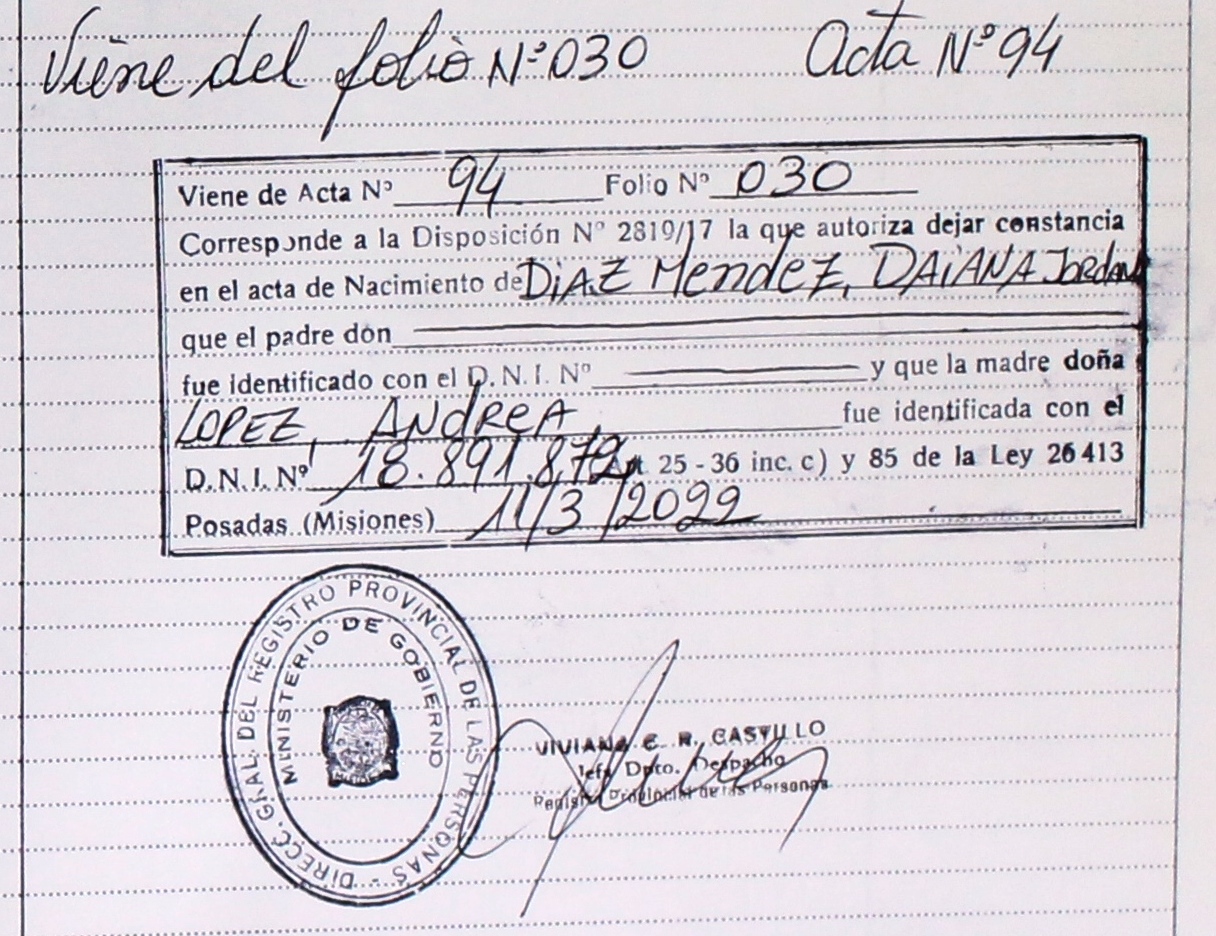 Viene del folio Nº 030 Acta Nº 94
Viene de Acta Nº 94 Folio Nº 030
Corresponde a la Disposición Nº 2819/17 la que autoriza dejar constancia
en el acta de Nacimiento de DiAZ MendeZ, DAiANA JORDANA
que el padre don
fue identificado con el D. N. I. Nº y que la madre doña
LOPEZ, ANDREA, fue identificada con el
D.N.I. Nº 18.891.872 Art 25 - 36 inc. c) y 85 de la Ley 26413
Posadas (Misiones) 11/3/2022
DIRECC. GRAL. DEL REGISTRO PROVINCIAL DE LAS PERSONAS -
MINISTERIO DE GOBIERNO
VIVIANA E. R. CASTILLO
Jefa Dpto. Despacho
Registro Provincial de las Personas